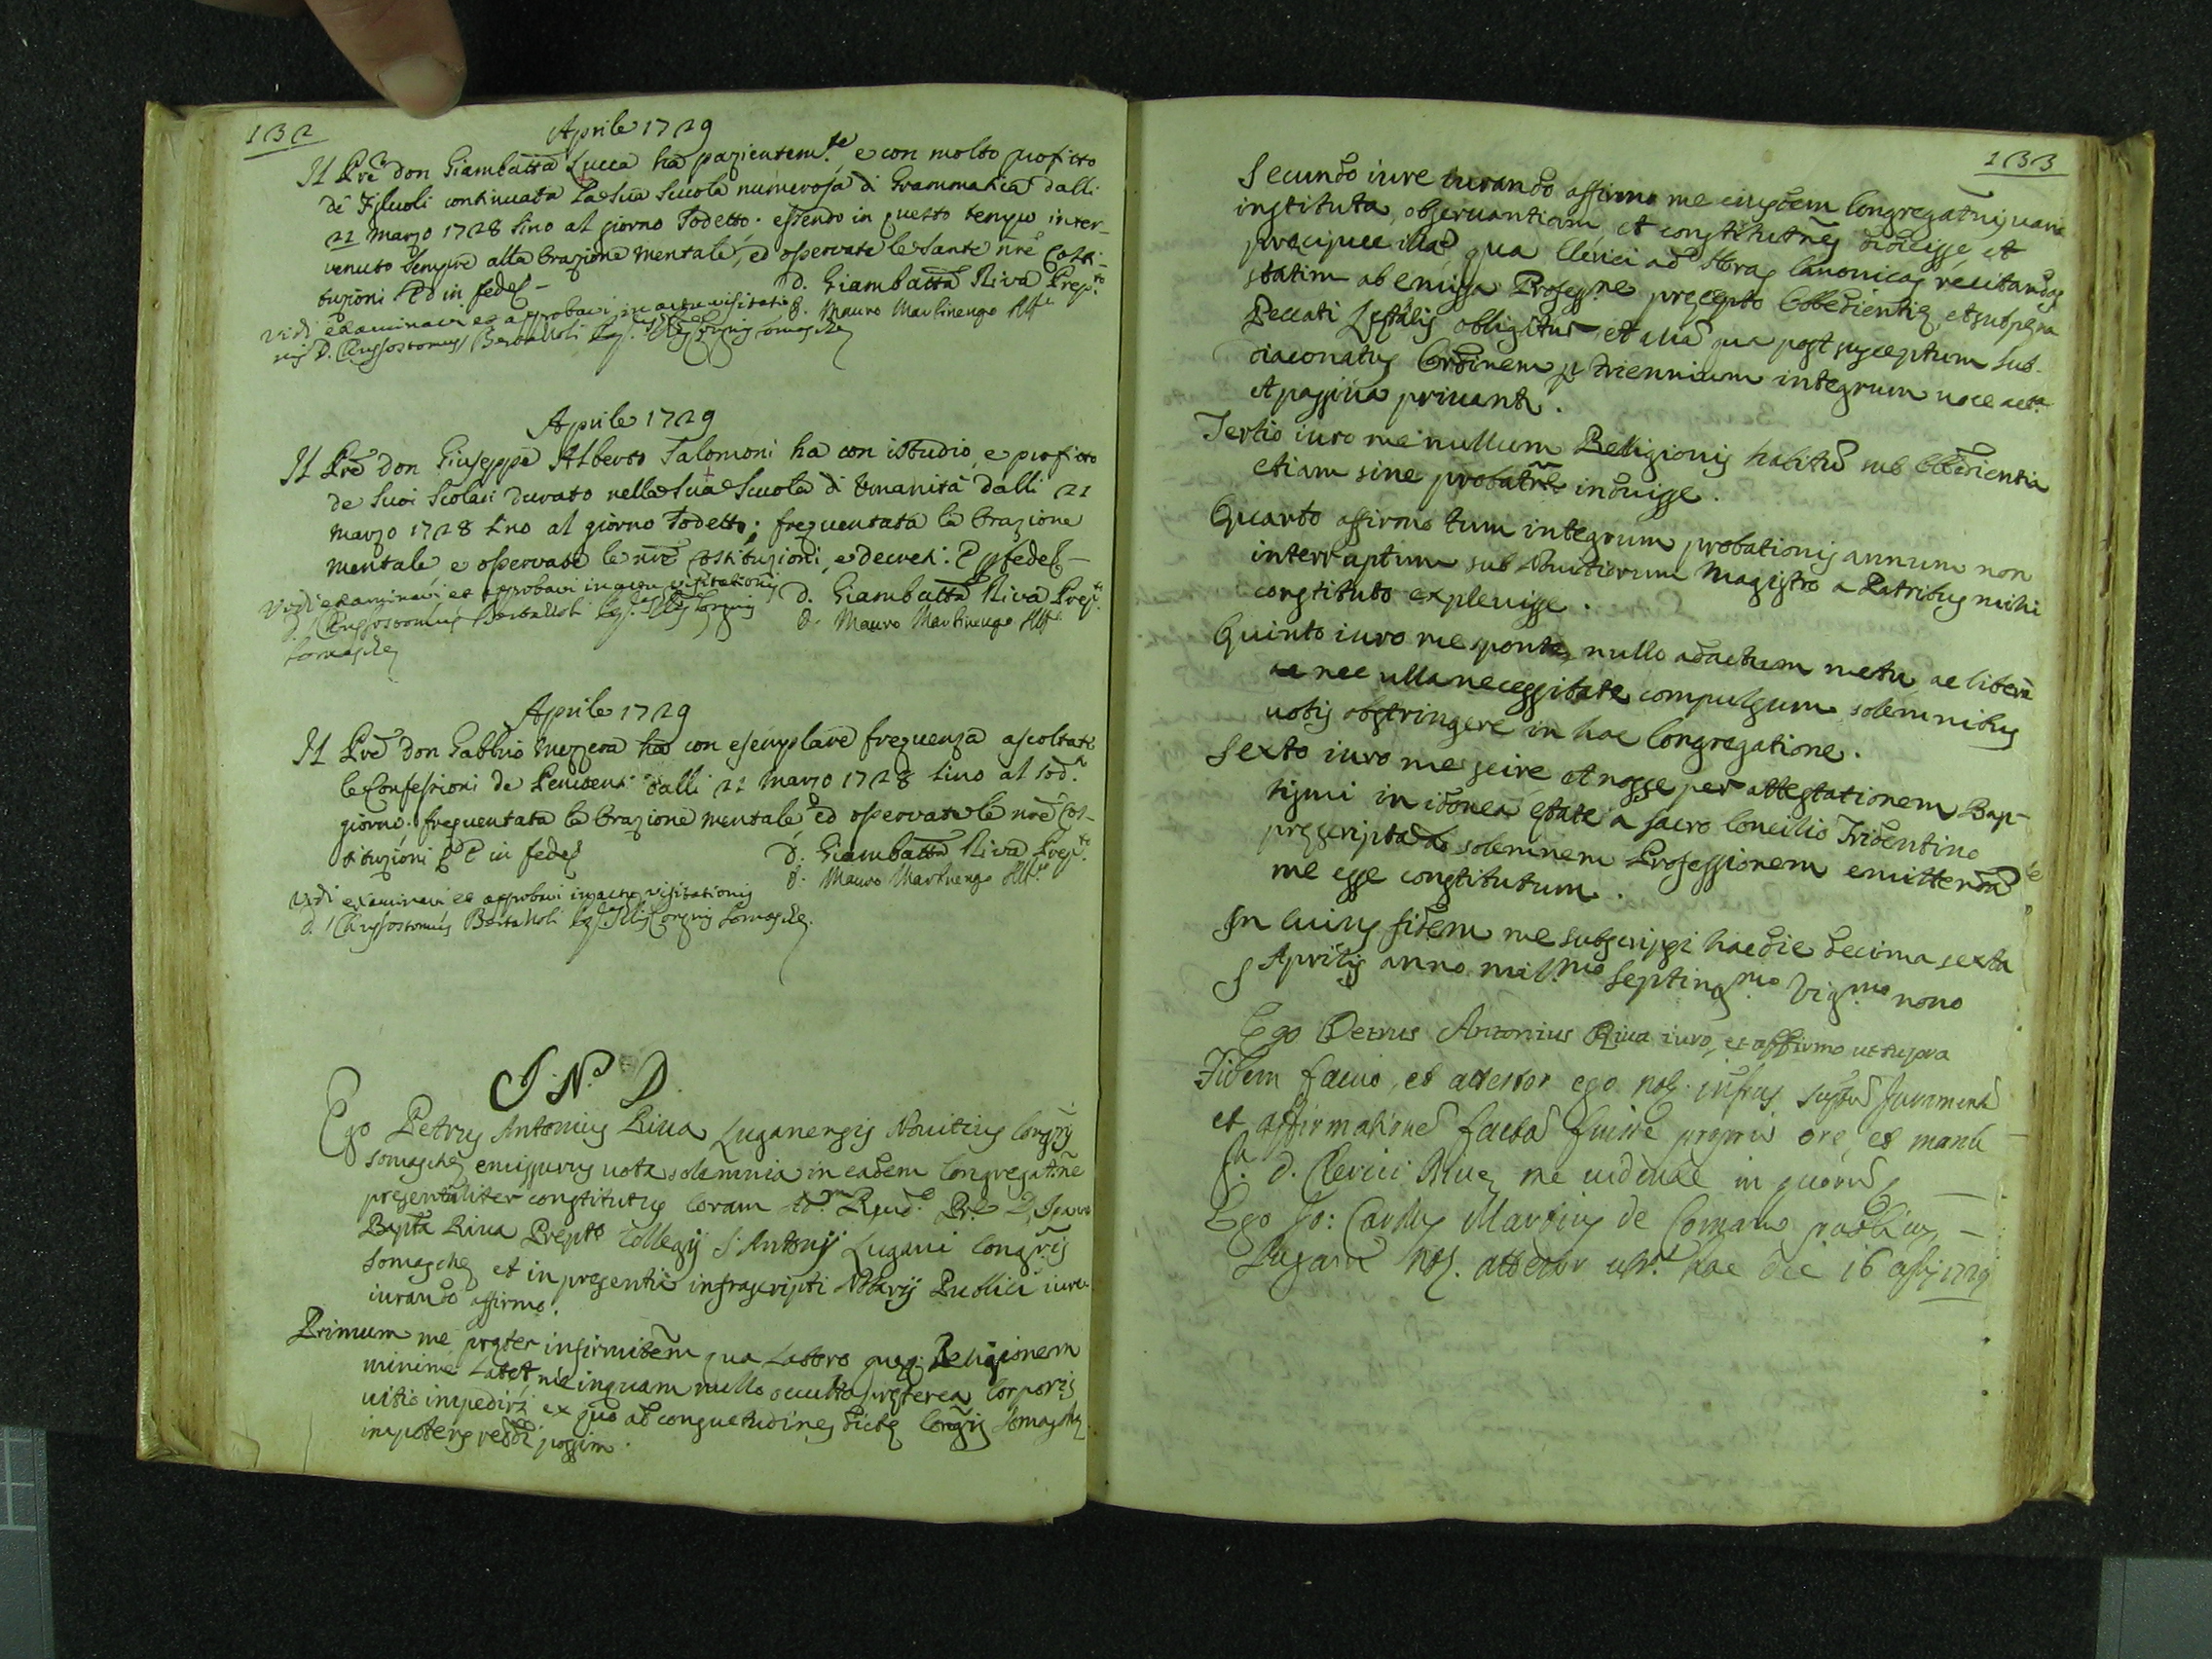 132
Aprile 1729
Il Pre don Giambatta Lucca ha pazientem.te e con molto profitto
de Figluoli continuata La Sua Scuola numerosa di Grammatica dalli
21 marzo 1728 sino al giorno sodetto: essendo in questo tempo inter-
venuto sempre alla Orazione mentale, ed osservate le sante nre Costi-
tuzioni Ed in fede
D. Giambatta Riva Prep.to
D. Mauro Martinengo Att.e
Vidi examinavi et approbavi in actu visitatio
nis D. Chrysostomus Bertazzoli Cong.nis Somaschę
Aprile 1729
Il Pre don Giuseppe Alberto Salomoni ha con istudio, e profitto
de Suoi Scolari durato nella Sua Scuola di Umanità dalli 21
marzo 1728 sino al giorno sodetto; frequentata la Orazione
mentale e osservate le nre Costituzioni, e decreti: E p fede
D. Giambatta Riva Prep.to
D. Mauro Martinengo Att.e
Vidi examinavi et approbavi in actu visitationis
D. Chrysostomus Bertazzoli Congnis
Somaschę
Aprile 1729
Il Pre don Gabbrio Mezzera ha con esemplare frequenza ascoltate
le Confessioni de Penitenti dalli 21 marzo 1728 sino al sod.o
giorno. frequentata la Orazione mentale ed osservate le nre Cos-
tituzioni E in fede
D. Giambatta Riva Prep.to
D. Mauro Martinengo Att.e
Vidi examinavi et approbavi in actu visitationis
D. Chrysostomus Bertazzoli Congnis Somaschę.
I. N. D.
Ego Petrus Antonius Riua Luganensis Nouitius Congnis
somaschę emissurus uota solemnia in eadem Congregatne
presentialiter constitutus Coram Ad.m Reud.o Pre D. Ioanne
Bapta Riua Prepto Collegij S. Antonij Lugani Congris
somaschę et in presentia infrascripti Notarij Publici iure-
iurando affirmo.
Primum me pręter infirmitem qua Laboro quęq. Religionem
minime Latet, me inquam nullo occulto pręterea Corporis
uitio impediri ex quo ad consuetudines dictę Congris somaschę
impotens reddi possim.
133
Secundo iure iurando affirmo me eiusdem Congregatnis uarie
instituta, obseruantiam et constitutnes didicisse, et
precipue illa qua Clerici ad Horas Canonicas recitandas
statim ab emissa Professne precepto Obedientię, et sub pęna
Peccati Lethalis obligatur, et alia qua post susceptum Sub-
diaconatus Ordinem p triennium integrum uoce acta
et passiua priuant.
Tertio iuro me nullum Religionis habitu sub Obedientia
etiam sine probatne induisse.
Quarto affirmo tum integrum probationis annum non
interruptum sub Nouitiorum Magistro a Patribus mihi
constituto expleuisse.
Quinto iuro me sponte, nullo adactum metu, ac libere
nec ulla necessitate compulsum solemnibus
uotis obstringere in hac Congregatione.
Sexto iuro me scire et nosse per attestationem Bap-
tismi in idonea ętate a sacro Concilio Tridentino
pręscripta solemnem Professionem emittendi
me esse constitutum.
In cuius fidem me subscripsi hac die decima sexta
Aprilis anno mill.mo septing.mo Vig.mo nono
Ego Petrus Antonius Riua iuro, et affirmo ut supra
Fidem facio, et attestor ego not. infrus supra Iurament
et affirmatione facta fuisse proprio ore, et manu
D. Clerici Riuę me uidente in quorum
Ego Io: Carolus Martius de Comano publicus
Lugani Not. attestor ut s.a hac die 16 aplis 1729